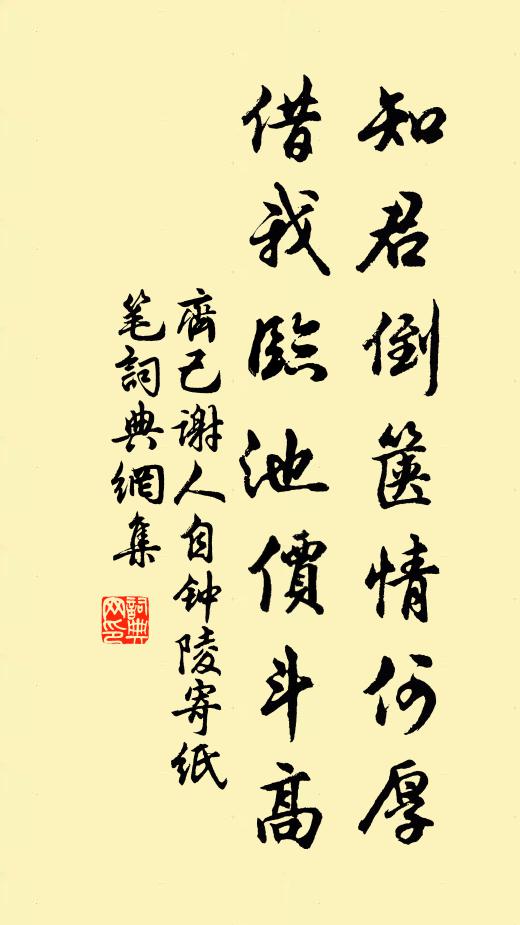 知君倒篋情何厚
借我臨池價斗高
齊己谢人自钟陵寄纸
笔詞典網集
詞典
网印